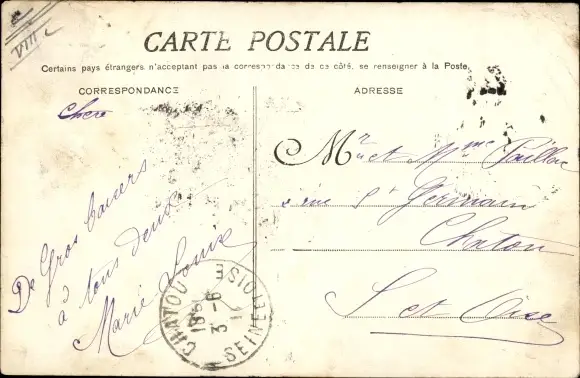 VIII e
CARTE POSTALE
Certains pays étrangers n'acceptant pas la correspondance de ce côté, se renseigner à la Poste.
CORRESPONDANCE
ADRESSE
Chere
De Gros baisers
à tous deux
Marie Louise
Mr et Mme
rue St Germain
Chatou
S et Oise
CHATOU
SEINE ET OISE